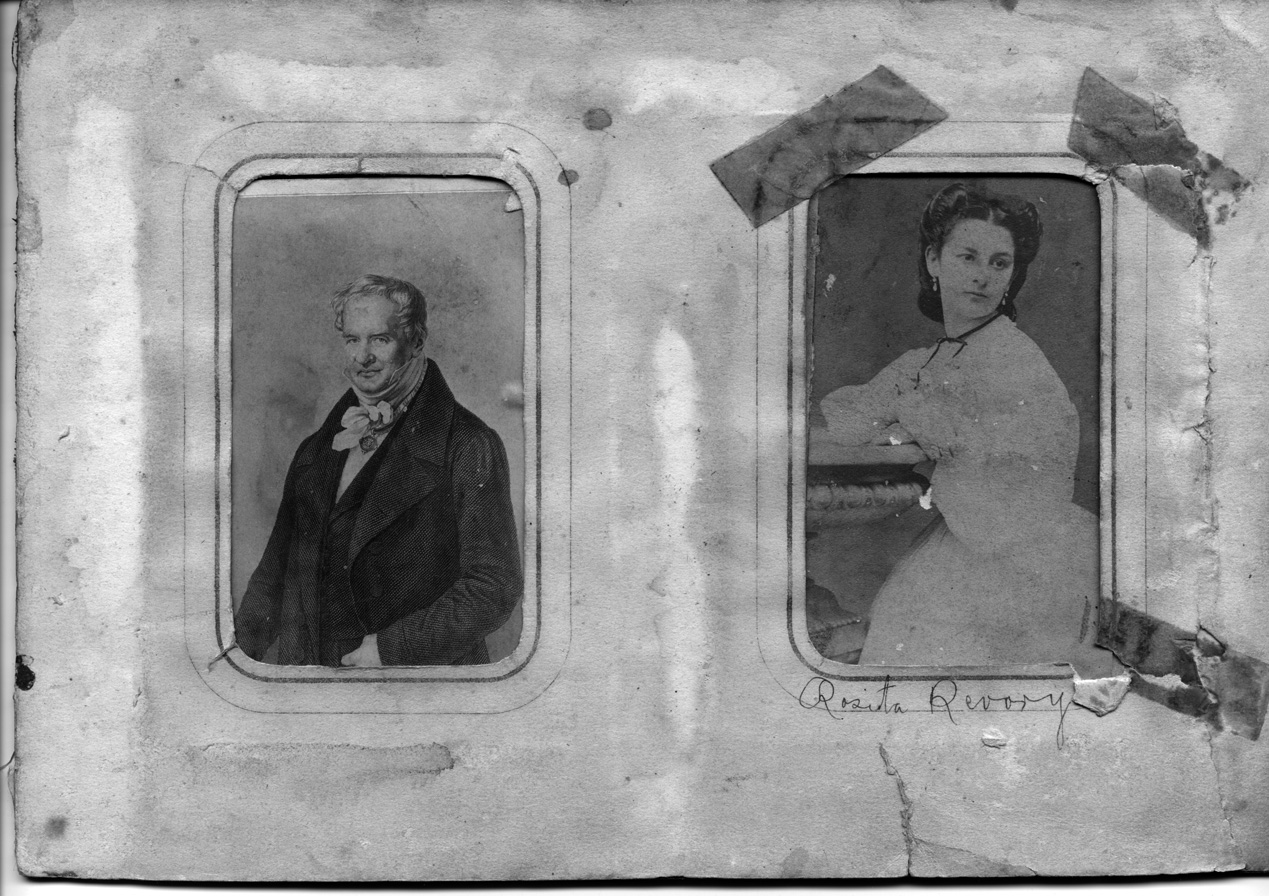 Rosita Revory